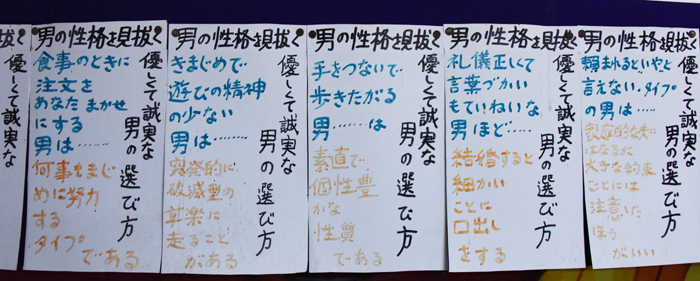 抜く
優しくて誠実な
男の性格を見抜く
優しくて誠実な
男の選び方
食事のときに
注文を
あなた まかせ
にする
男は……
何事もまじ
めに努力
する
タイプ
である
男の性格を見抜く
優しくて誠実な
男の選び方
きまじめで
遊びの精神
の少ない
男は……
突発的に
破滅型の
享楽に
走ること
がある
男の性格を見抜く
優しくて誠実な
男の選び方
手をつないで
歩きたがる
男……は
素直で
個性豊
かな
性質
である
男の性格を見抜く
優しくて誠実な
男の選び方
礼儀正しくて
言葉づかい
もていねいな
男ほど……
結婚すると
細かい
ことに
口出し
をする
男の性格を見抜く
優しくて誠実な
男の選び方
頼まれるといやと
言えない・タイプ
の男は……
家庭的な夫に
はなるが
大きな約束
ことには
注意した
ほう
がいい